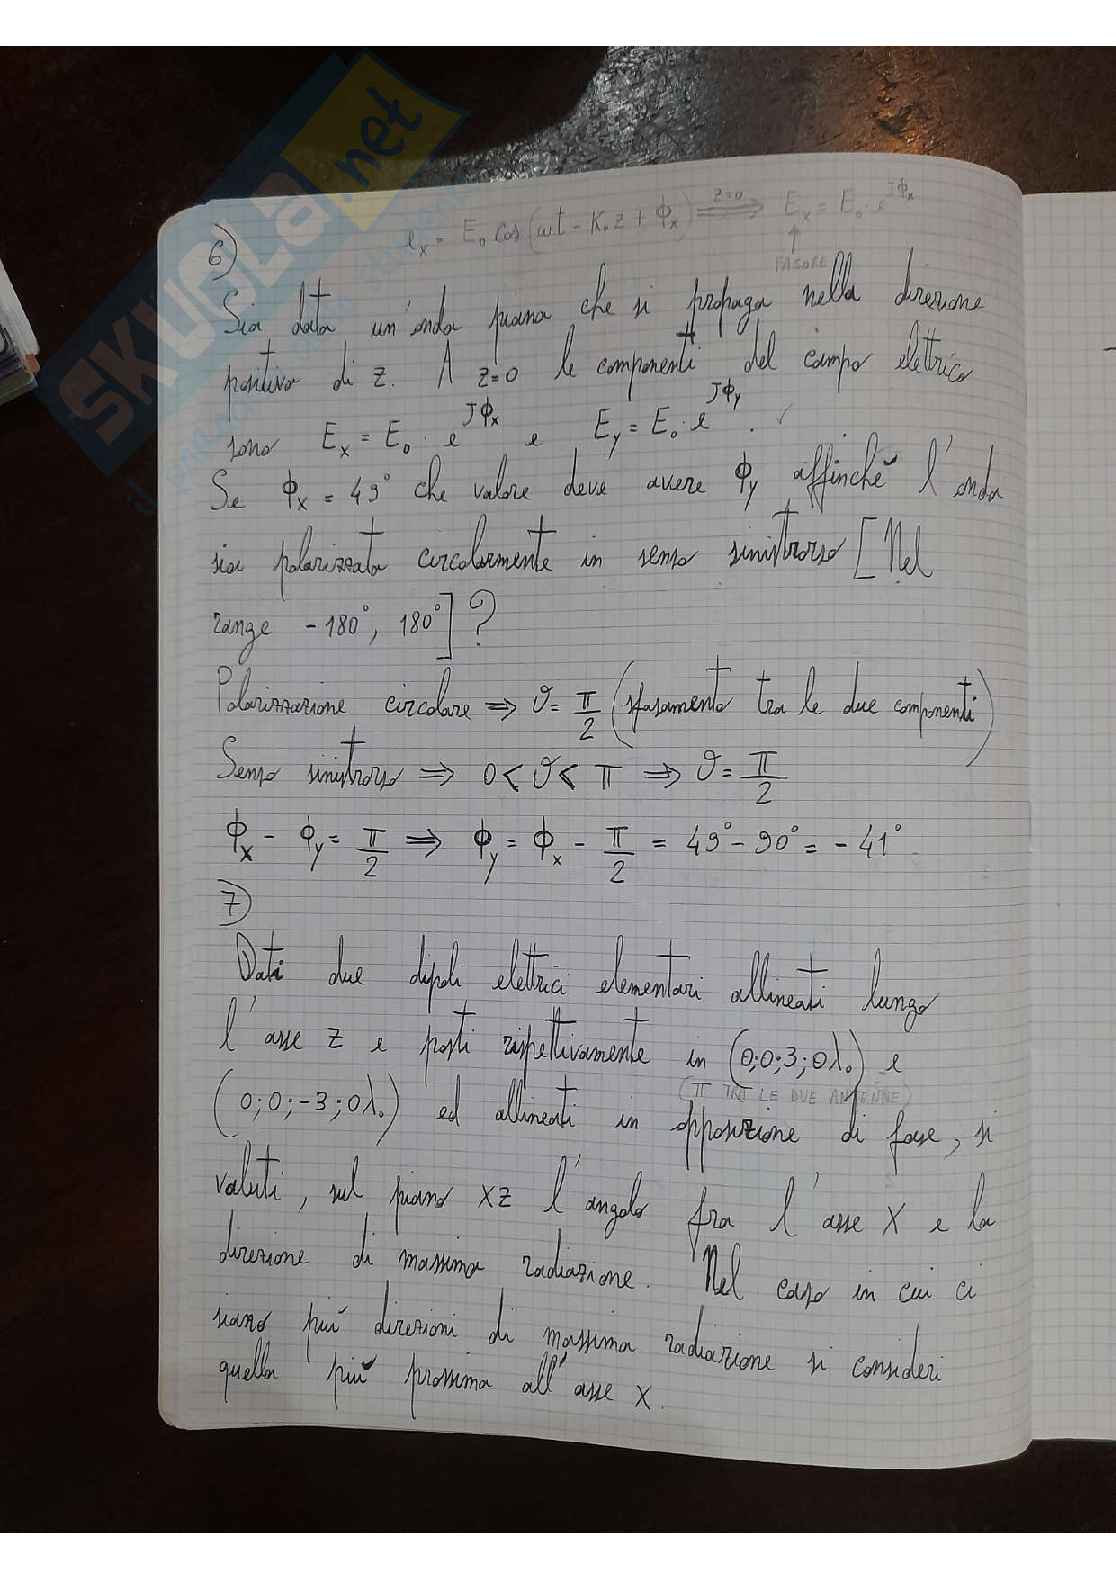 SKUOLA.net
e_x = E_0 cos(ωt - K_0 z + ϕ_x) ⟹ z=0 E_x = E_0 · e^{Jϕ_x}
↑
FASORE
6)
Sia data un'onda piana che si propaga nella direzione
positiva di z. A z=0 le componenti del campo elettrico
sono E_x = E_0 · e^{Jϕ_x} e E_y = E_0 · e^{Jϕ_y}.
Se ϕ_x = 49° che valore deve avere ϕ_y affinché l'onda
sia polarizzata circolarmente in senso sinistrorso [Nel
range -180°, 180°]?
Polarizzazione circolare ⟹ ϑ = π/2 (sfasamento tra le due componenti)
Senso sinistrorso ⟹ 0 < ϑ < π ⟹ ϑ = π/2
ϕ_x - ϕ_y = π/2 ⟹ ϕ_y = ϕ_x - π/2 = 49° - 90° = - 41°
7)
Dati due dipoli elettrici elementari allineati lungo
l'asse z e posti rispettivamente in (0;0;3;0λ_0) e
(π TRA LE DUE ANTENNE)
(0;0;-3;0λ_0) ed allineati in opposizione di fase, si
valuti, sul piano XZ l'angolo fra l'asse X e la
direzione di massima radiazione. Nel caso in cui ci
siano più direzioni di massima radiazione si consideri
quella più prossima all'asse X.